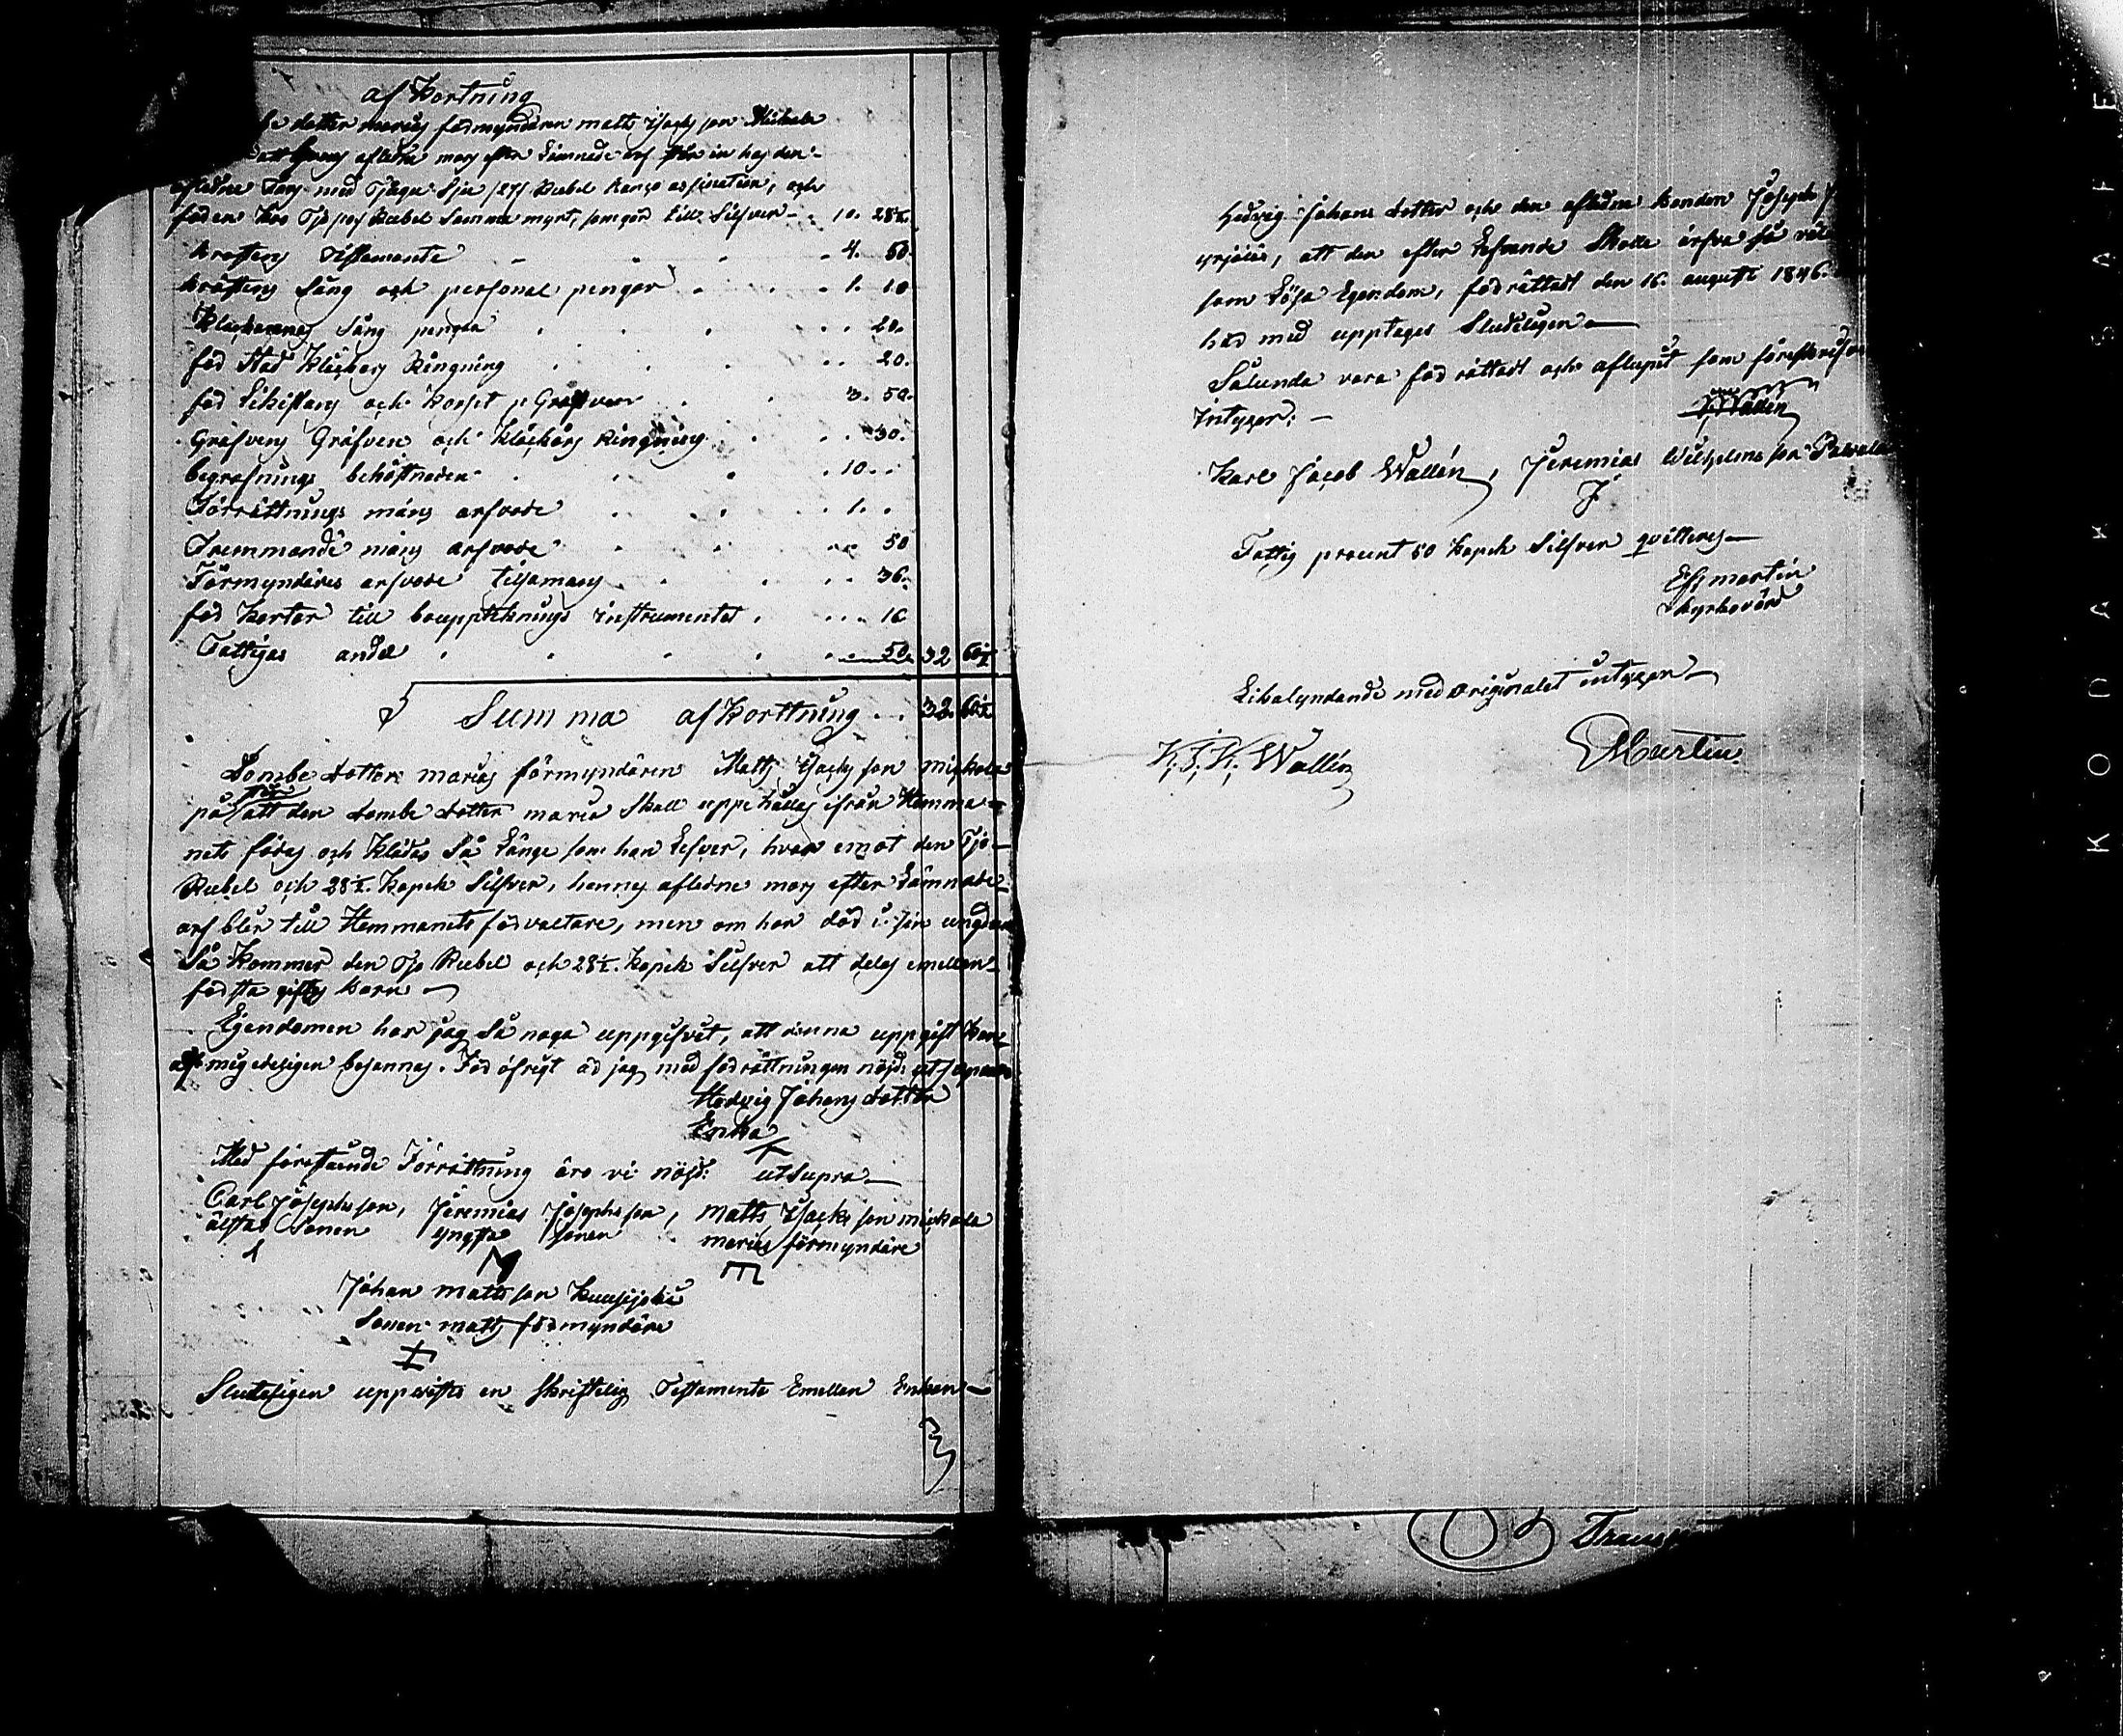 af Kortning
dotter marias förmyndaren matts Isacks son Mickala
att hennes aflidne mors efter Lämnade arf står in hos den
aflidne Fars med Tjugu Sju /27/ Rubel Banco assination, och
för en Koo Tjo /10/ Rubel Samma mynt, som gör till Silfver 10. 28½
Prostens Testamente 4. 50.
Prostens Sång och personal pengar 1. 10
Klåckarenas Sång pengar 20.
för Stad Klåckars Ringning 20.
för Likistans och Korset p Grafven 3. 50.
Grafvens Gräfven och Klåckars Ringning 30.
begrafnings behöfneden 10.
Förrättnings mans arfvode 1.
Fremmande mans arfvode 50
Förmyndares arfvode tilsamans 36.
för Karter till bouppteknings instrumentet 16
Fattigas andel 50. 32 60½
Summa af Korttning 32. 60½
Dombe dotter marias förmyndaren Matts Isacks son Mickala
står
på att den dombe dotter maria Skall uppehållas ifrån Hemma-
nets födas och Klädas Så Länge som hon Lefver, hvar emot den Tjo
Rubel och 28½ Kopek Silfver, hennes aflidne mors efter Lämnade
arf blir till Hemmanets förvaltare, men om hon dör i sin ungdom
Så Kommer den Tjo Rubel och 28½ Kopek Silfver att delas emellan
första giftes barn
Egendomen har jag Så noga uppgifvet, att denna uppgift Kan
af mig edeligen besannas. För öfrigt är jag med förrättningen nöjd. ut supra
Hedvig Johans dotter
Enka
Med förestående Förrättning äro vi nöjd. ut Supra
Carl Josephs son, Jeremias Josephs son, Matts Isacks son mickala
älsta Sonen yngsta sonen marias förmyndare
Johan matts son Kuusijoki
Sonen matts förmyndare
Sluteligen uppvistes en skriftelig Testamente Emellan Enkan
Hedvig Johans dotter och den aflidne bonden Joseph
yrjälä, att den efter Lefvande Skolle ärfva så väl
som Lösa Egendom, förrättadt den 16. augusti 1846.
här med upptages Sluteligen
Sålunda vara förrättadt och aflupit som föreskrifvit
Intyger.
Karl Jacob Wallén, Jeremias Wilhelms son Pavala
Fattig procent 50 Kopek Silfver qvitteras
Martin
Kyrkovärd
Likalyndande med originalet intyger
K. J. K. Wallén
Martin
KODAK SAFE